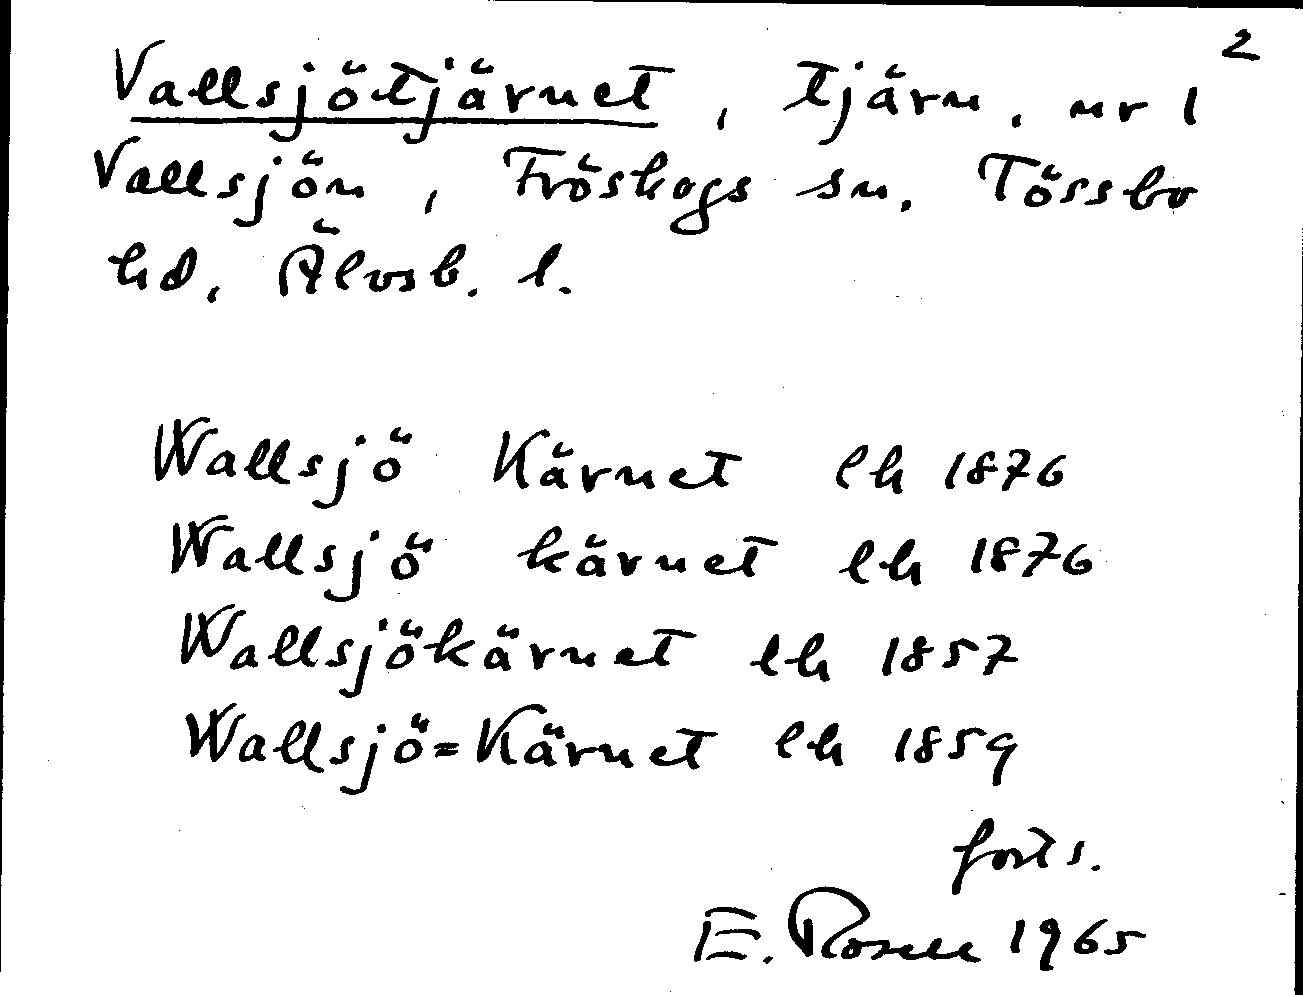 2
Vallsjötjärnet, tjärn, nr 1
Vallsjön, Fröskogs sn. Tössbo
hd, Älvsb. l.
Wallsjö Kärnet lh 1876
Wallsjö kärnet lh 1876
Wallsjökärnet lh 1857
Wallsjö=Kärnet lh 1859
forts.
E. Rosell 1965